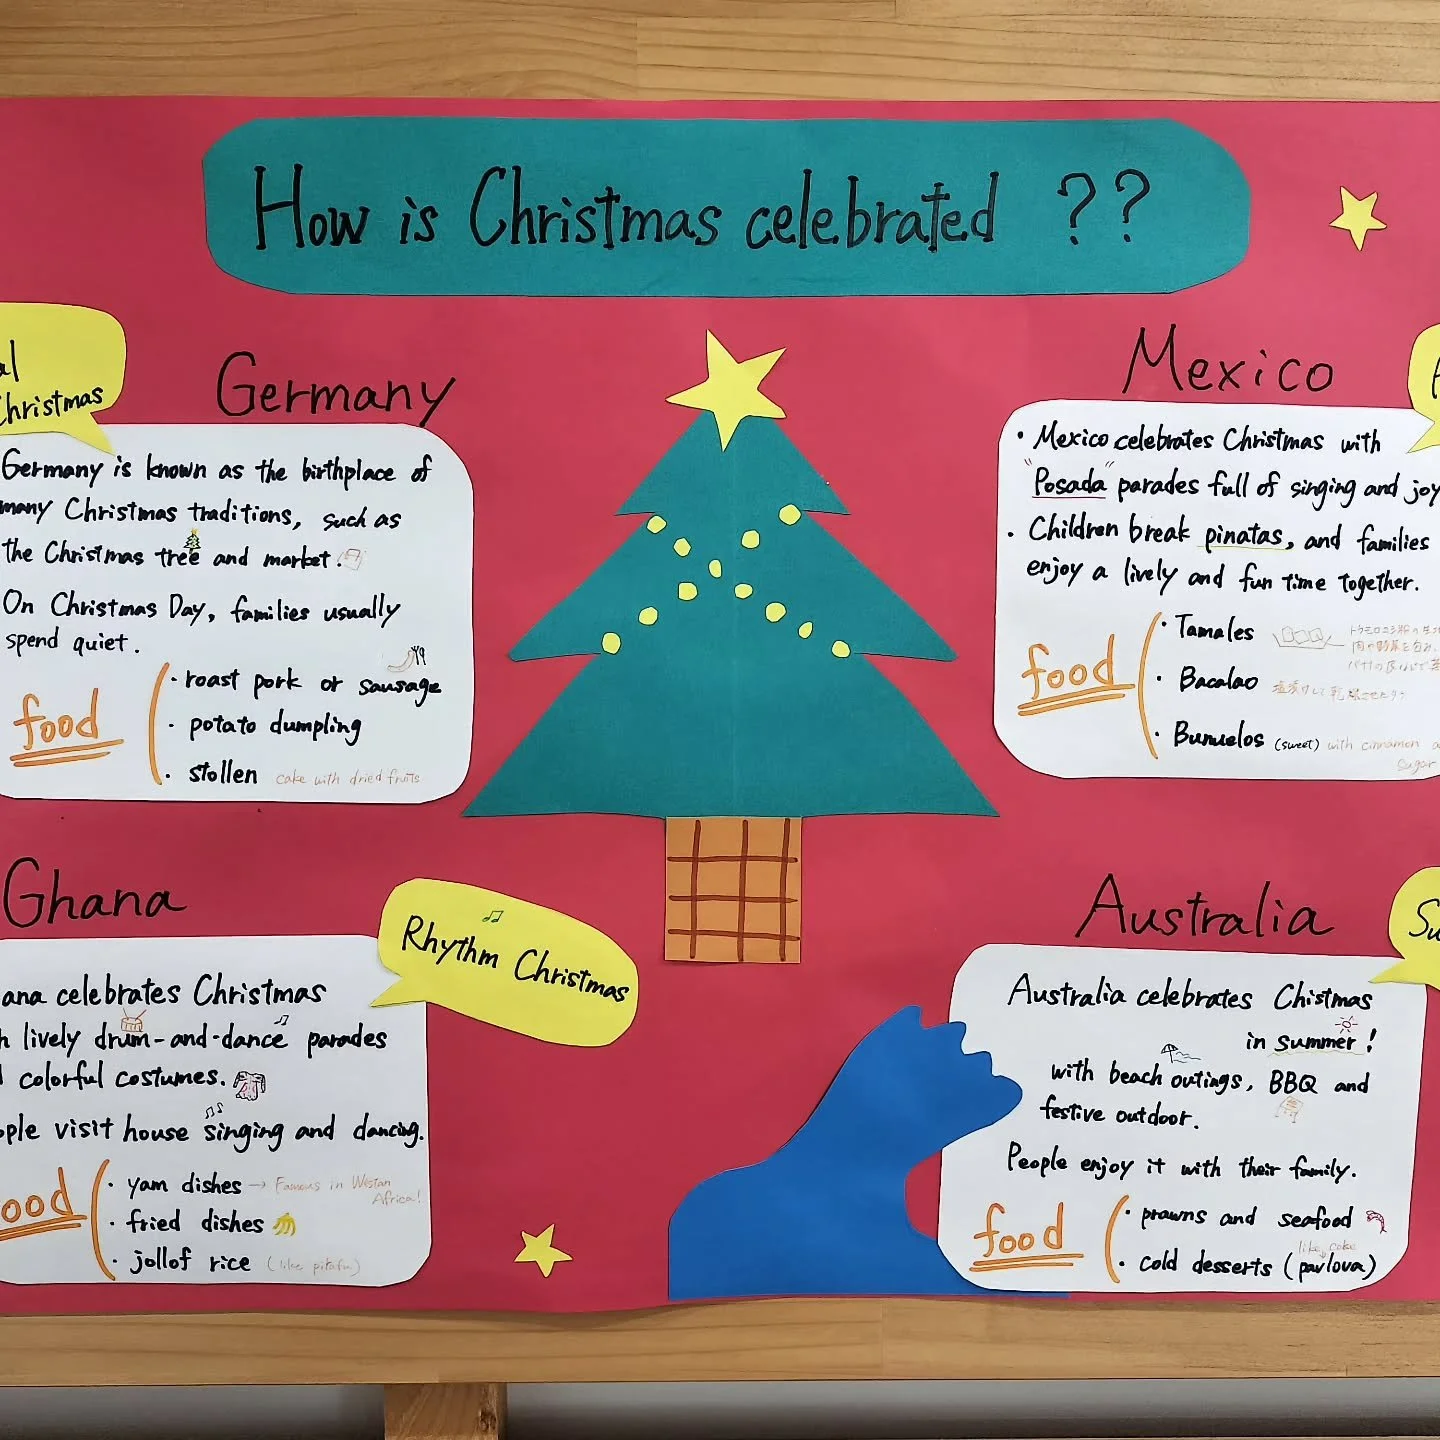 How is Christmas celebrated ??
Christmas
Germany
Germany is known as the birthplace of
many Christmas traditions, such as
the Christmas tree and market.
On Christmas Day, families usually
spend quiet.
food
· roast pork or sausage
· potato dumpling
· stollen cake with dried fruits
Mexico
· Mexico celebrates Christmas with
"Posada" parades full of singing and joy
· Children break pinatas, and families
enjoy a lively and fun time together.
food
· Tamales
· Bacalao 塩漬けして乾燥させたタラ
· Bunuelos (sweet) with cinnamon
sugar
Ghana
Rhythm Christmas
celebrates Christmas
lively drum-and-dance parades
colorful costumes.
visit house singing and dancing.
· yam dishes → Famous in Westan
Africa!
· fried dishes
· jollof rice
Australia
Australia celebrates Chistmas
in summer!
with beach outings, BBQ and
festive outdoor.
People enjoy it with their family.
food
· prawns and seafood
like cake
· cold desserts (pavlova)